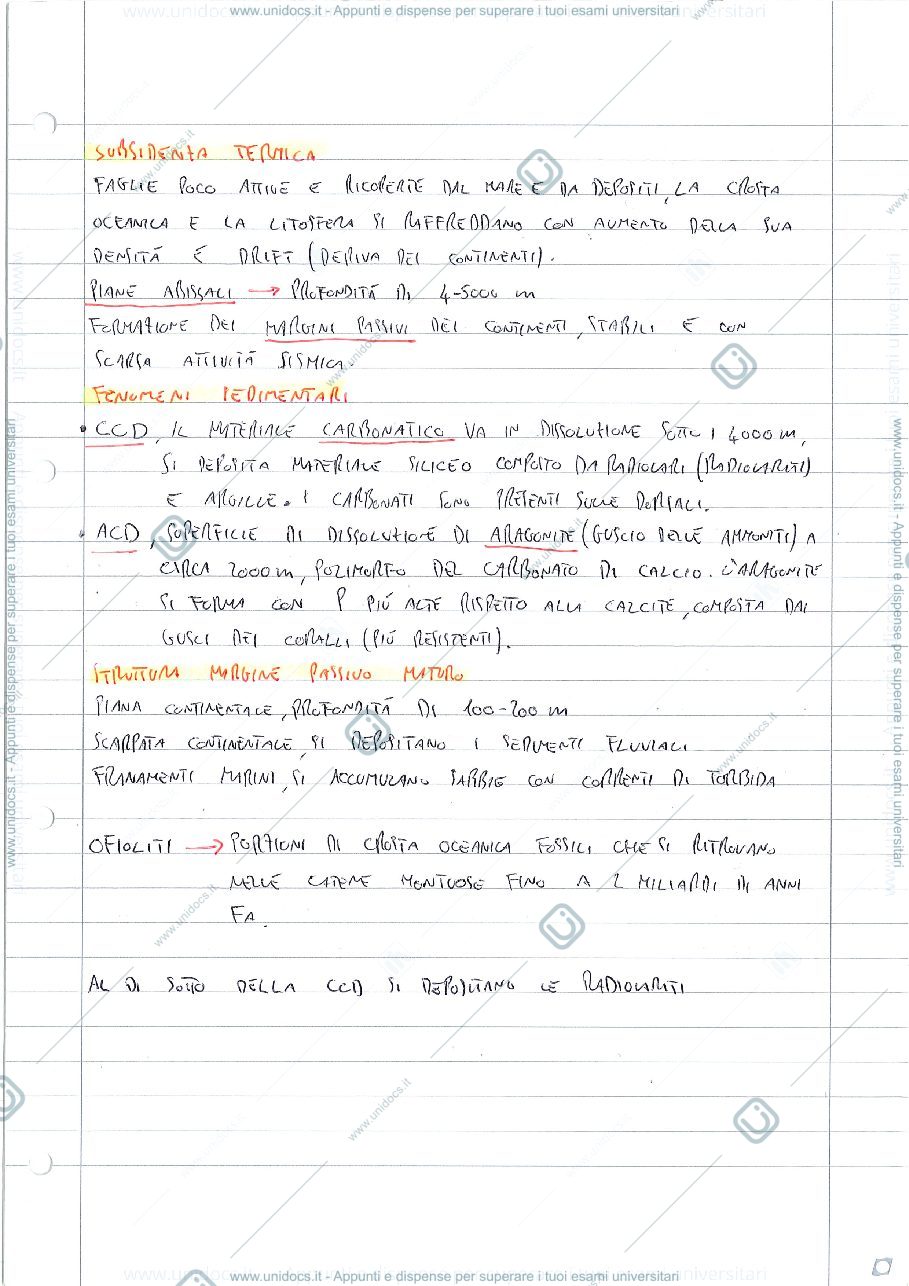 www.unidocs.it - Appunti e dispense per superare i tuoi esami universitari
SUBSIDENZA TERMICA
FAGLIE POCO ATTIVE E RICOPERTE DAL MARE E DA DEPOSITI, LA CROSTA
OCEANICA E LA LITOSFERA SI RAFFREDDANO CON AUMENTO DELLA SUA
DENSITÀ E DRIFT (DERIVA DEI CONTINENTI).
PIANE ABISSALI → PROFONDITÀ DI 4-5000 m
FORMAZIONE DEI MARGINI PASSIVI DEI CONTINENTI, STABILI E CON
SCARSA ATTIVITÀ SISMICA.
FENOMENI SEDIMENTARI
• CCD, IL MATERIALE CARBONATICO VA IN DISSOLUZIONE SOTTO I 4000 m,
SI DEPOSITA MATERIALE SILICEO COMPOSTO DA RADIOLARI (RADIOLARITI)
E ARGILLE. I CARBONATI SONO PRESENTI SULLE DORSALI.
• ACD, SUPERFICIE DI DISSOLUZIONE DI ARAGONITE (GUSCIO DELLE AMMONITI) A
CIRCA 2000 m, POLIMORFO DEL CARBONATO DI CALCIO. L'ARAGONITE
SI FORMA CON P PIÙ ALTE RISPETTO ALLA CALCITE, COMPOSTA DAI
GUSCI DEI CORALLI (PIÙ RESISTENTI).
STRUTTURA MARGINE PASSIVO MATURO
PIANA CONTINENTALE, PROFONDITÀ DI 100-200 m
SCARPATA CONTINENTALE, SI DEPOSITANO I SEDIMENTI FLUVIALI
FRANAMENTI MARINI, SI ACCUMULANO SABBIE CON CORRENTI DI TORBIDA
OFIOLITI → PORZIONI DI CROSTA OCEANICA FOSSILI CHE SI RITROVANO
NELLE CATENE MONTUOSE FINO A 2 MILIARDI DI ANNI
FA.
AL DI SOTTO DELLA CCD SI DEPOSITANO LE RADIOLARITI
www.unidocs.it - Appunti e dispense per superare i tuoi esami universitari